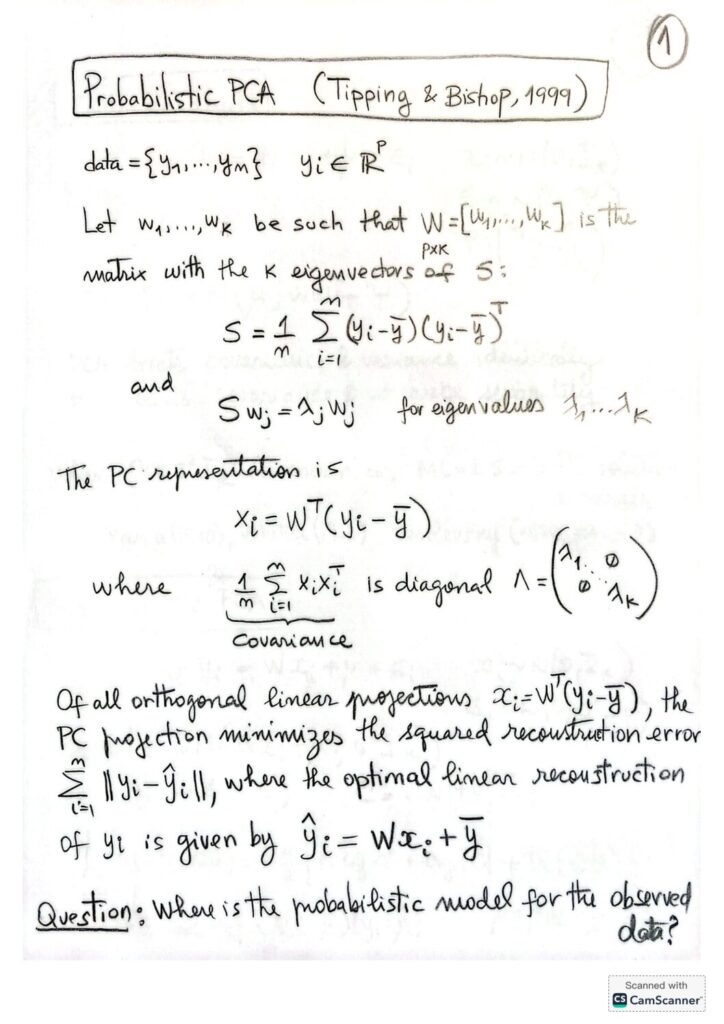 1
Probabilistic PCA (Tipping & Bishop, 1999)
data = {y₁, ..., yₙ} yᵢ ∈ ℝᴾ
Let w₁, ..., w_K be such that W = [w₁, ..., w_K] is the
P×K
matrix with the K eigenvectors of S:
S = 1/n Σᵢ₌₁ⁿ (yᵢ-ȳ)(yᵢ-ȳ)ᵀ
and
S wⱼ = λⱼ wⱼ for eigenvalues λ₁ ... λ_K
The PC representation is
xᵢ = Wᵀ(yᵢ - ȳ)
where 1/n Σᵢ₌₁ⁿ xᵢxᵢᵀ is diagonal Λ = (λ₁ ⋱ 0 0 λ_K)
covariance
Of all orthogonal linear projections xᵢ = Wᵀ(yᵢ-ȳ), the
PC projection minimizes the squared reconstruction error
Σᵢ₌₁ⁿ ‖yᵢ - ŷᵢ‖, where the optimal linear reconstruction
of yᵢ is given by ŷᵢ = Wxᵢ + ȳ
Question: Where is the probabilistic model for the observed
data?
Scanned with
CS CamScanner